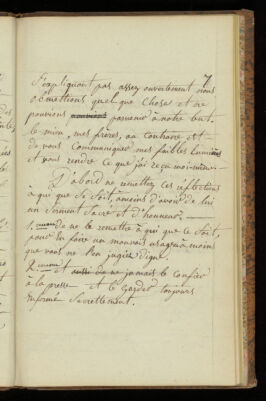 7
S'expliquent pas assez ouvertement nous
obmettions quelque chose et ne
pouvions parvenir à notre but.
le mien, mes frères, au contraire est
de vous communiquer mes faibles lumières
et vous rendre ce que j'ai reçu moi-même.
D'abord ne remettez ces réflections
à qui que se soit, àmoins d'avoir de lui
un serment sacré et d'honneur.
de ne le remettre à qui que ce soit,
pour en faire un mauvais usage, à moins
que vous ne l'en jugiez digne.
Et ne jamais le confier
à la presse — Et le garder toujours
enfermé secrettement.